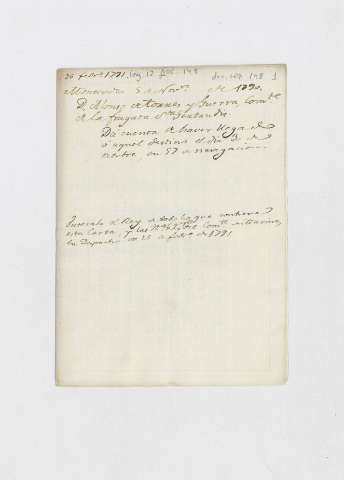 26 febro 1791, leg. 12 fol. 148 doc. 148 1
Montevideo 5 de Novre de 1790.
Dn Alonso de Torres y Guerra Comte
de la fragata Sta Gertrudis
Da cuenta de haver llegado
a aquel destino el dia 3 de
octubre con 57 de navegacion.
Enterado el Rey de todo lo que contiene
esta Carta, y las
en 26 de febro de 1791